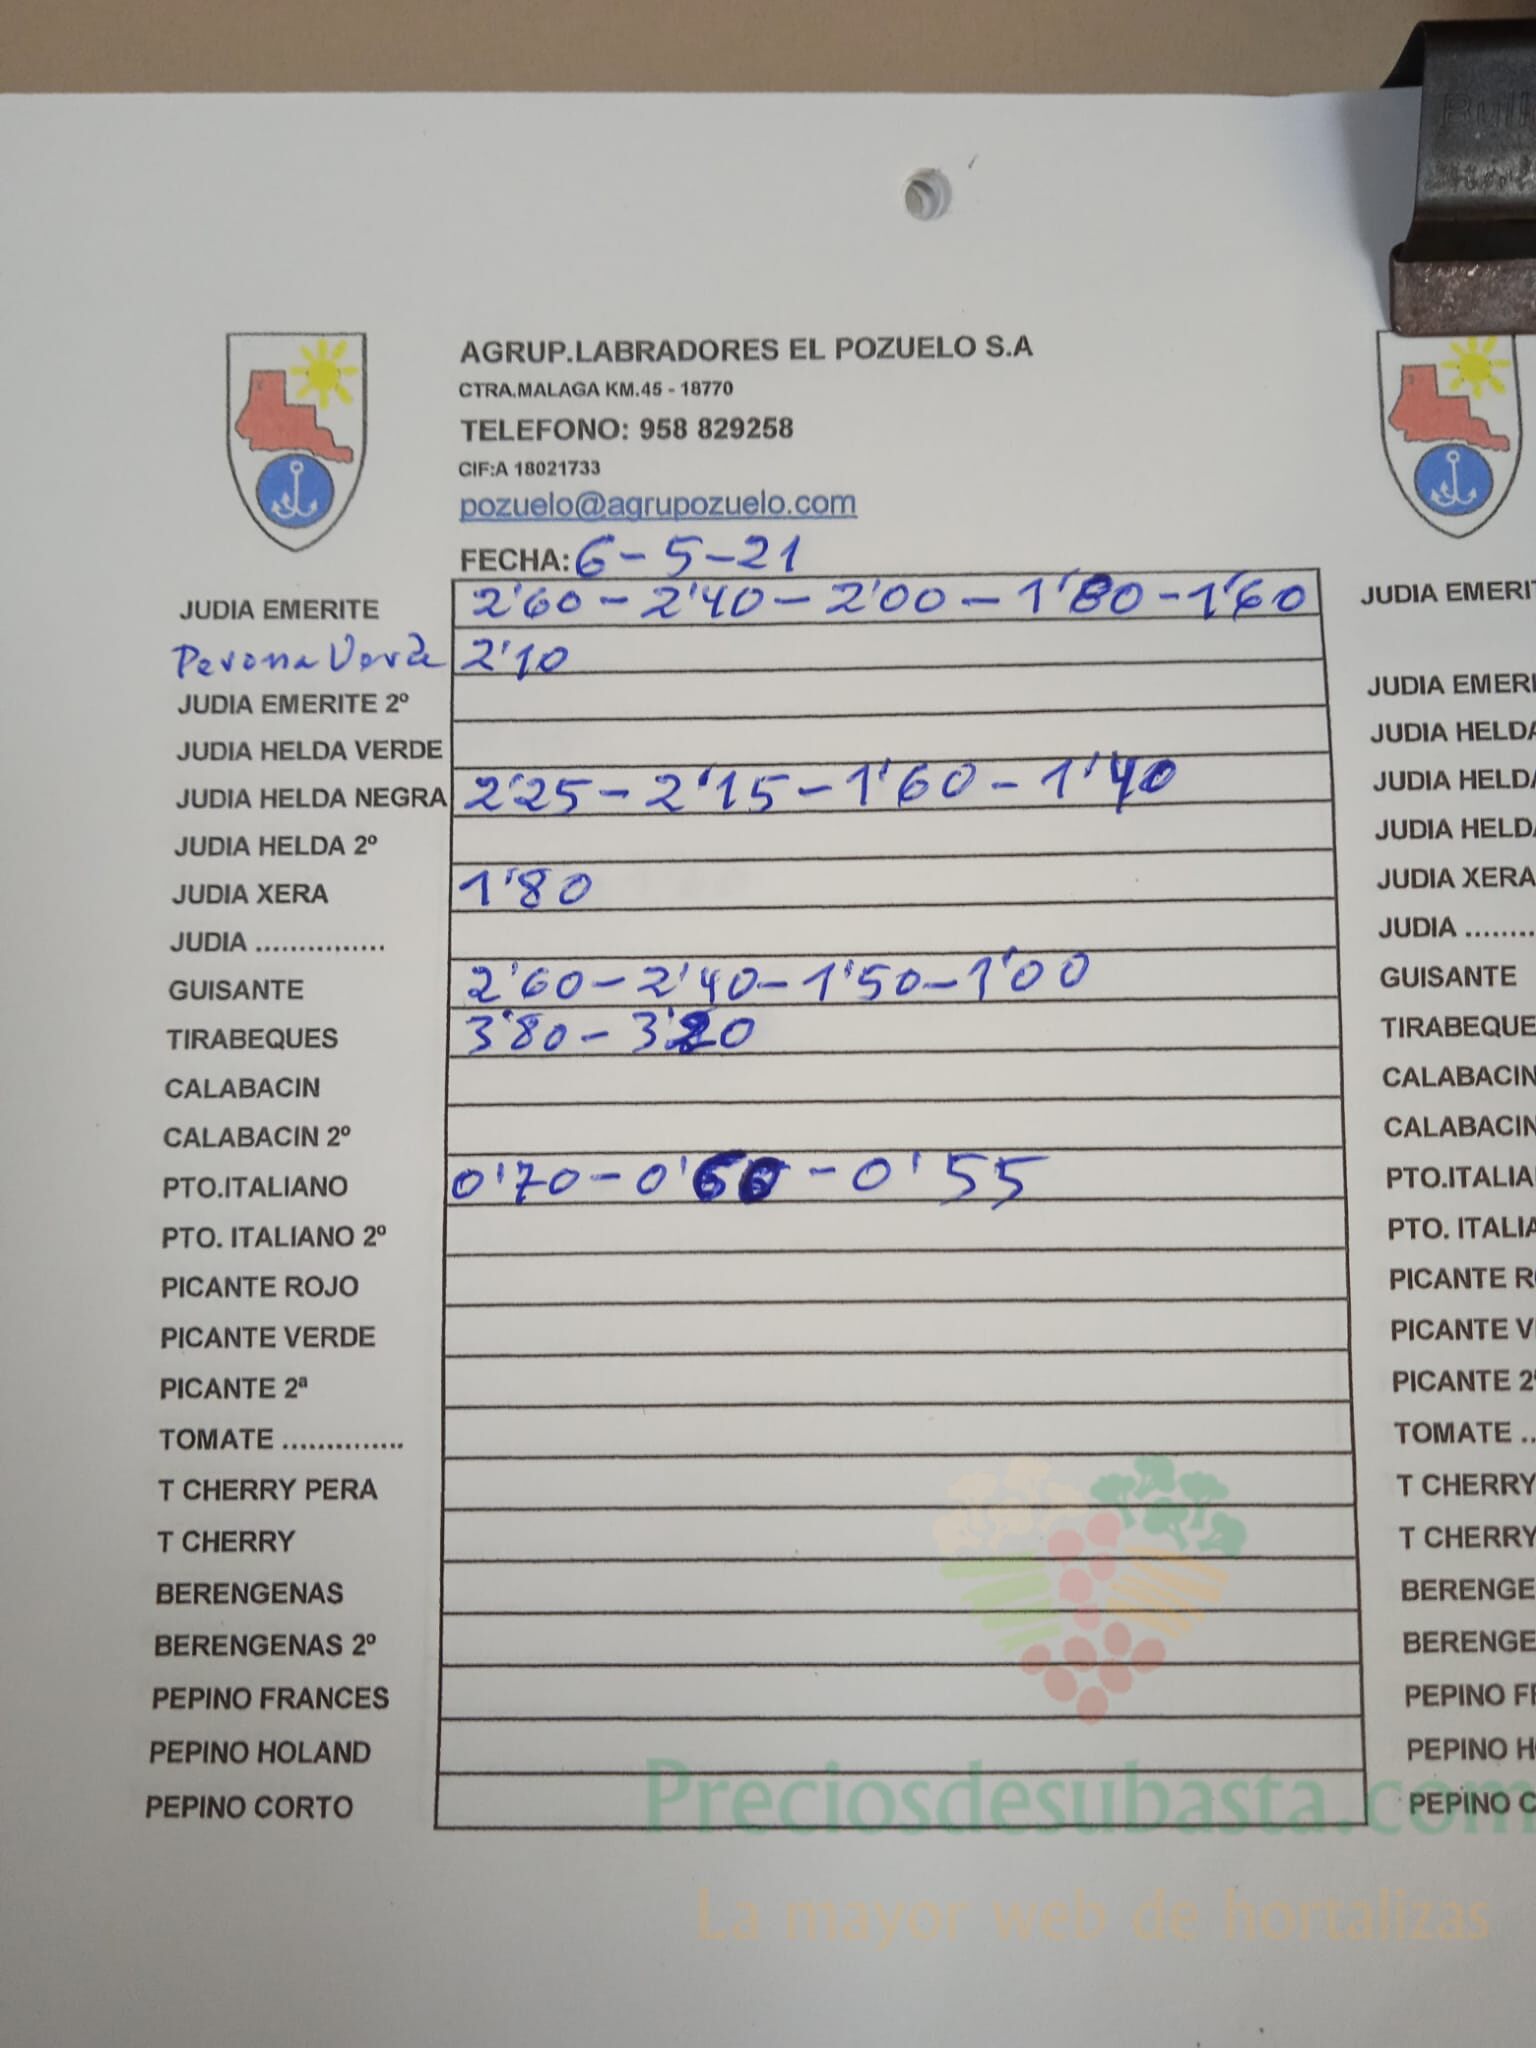 AGRUP.LABRADORES EL POZUELO S.A
CTRA.MALAGA KM.45 - 18770
TELEFONO: 958 829258
CIF:A 18021733
pozuelo@agrupozuelo.com
FECHA: 6-5-21
JUDIA EMERITE 2'60 - 2'40 - 2'00 - 1'80 - 1'60
Perona Verde 2'10
JUDIA EMERITE 2º
JUDIA HELDA VERDE
JUDIA HELDA NEGRA 2'25 - 2'15 - 1'60 - 1'40
JUDIA HELDA 2º
JUDIA XERA 1'80
JUDIA ...............
GUISANTE 2'60 - 2'40 - 1'50 - 1'00
TIRABEQUES 3'80 - 3'20
CALABACIN
CALABACIN 2º
PTO.ITALIANO 0'70 - 0'60 - 0'55
PTO. ITALIANO 2º
PICANTE ROJO
PICANTE VERDE
PICANTE 2ª
TOMATE ..............
T CHERRY PERA
T CHERRY
BERENGENAS
BERENGENAS 2º
PEPINO FRANCES
PEPINO HOLAND
PEPINO CORTO
JUDIA EMERIT
JUDIA EMERI
JUDIA HELDA
JUDIA HELDA
JUDIA HELDA
JUDIA XERA
JUDIA ........
GUISANTE
TIRABEQUE
CALABACIN
CALABACIN
PTO.ITALIA
PTO. ITALIA
PICANTE R
PICANTE V
PICANTE 2
TOMATE ..
T CHERRY
T CHERRY
BERENGE
BERENGE
PEPINO F
PEPINO H
PEPINO C
Preciosdesubasta.com
La mayor web de hortalizas